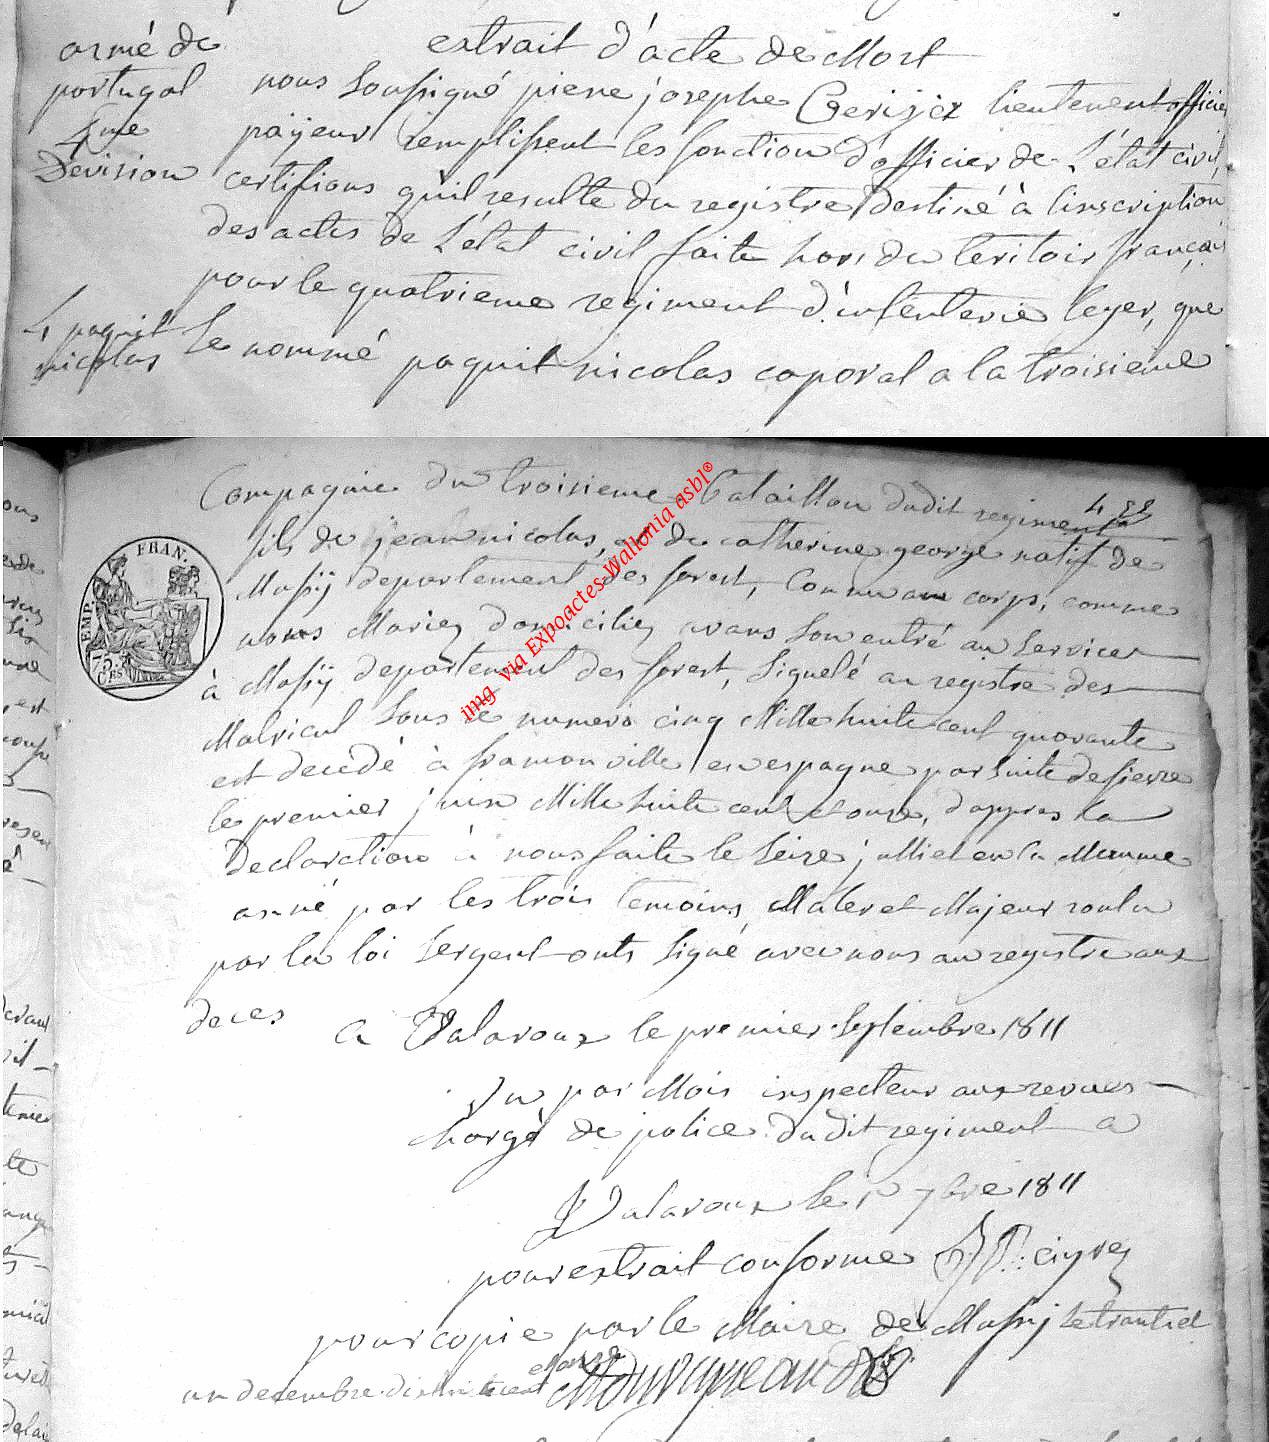 armé de
portugal
4me
Devision
extrait d'acte de Mort
nous Soussigné pierre josephe Cerisiez lieutenent officier
payeur remplissent les fonction d'officier de L'état civil,
certifions qu'il resulte du registre destiné à linscription
des actes de L'état civil faite hors du teritoir français
pour le quatrieme regiment d'infenterie leger, que
4 paquit
nicolas
Le nommé paquit nicolas caporal a la troisieme
Compagnie du troisieme Bataillon dudit regiment
fils de jean nicolas, et de catherine george natif de
Massÿ departement des forest, Connu au corps, comme
nons Mariez domiciliez avans Son entré au Service
à Massÿ departement des forest, Signelé au registre des
Matricul Sous le numero cinq Mille huite cent quarante
est decédé à framonville en espagne par Suite de fievre
le premier juin Mille huite cent et onze, d'appres la
Declaration à nous faite le Seize julliet en la Memme
anné par les trois temoins Male et Majeur voulu
par la loi Sergent onts Signé avec nous au registre aux
deces
a Talavoux le premier Septembre 1811
Vu par Mois inspecteur aux revues
chargé de police dudit regiment a
Talavoux le 1r 7bre 1811
pour extrait conforme
pour copie par le Maire de Massÿ Le trante et
un decembre dix huit cent
et onze
FRAN.
EMP.
75
img via Expoactes-Wallonia asbl®